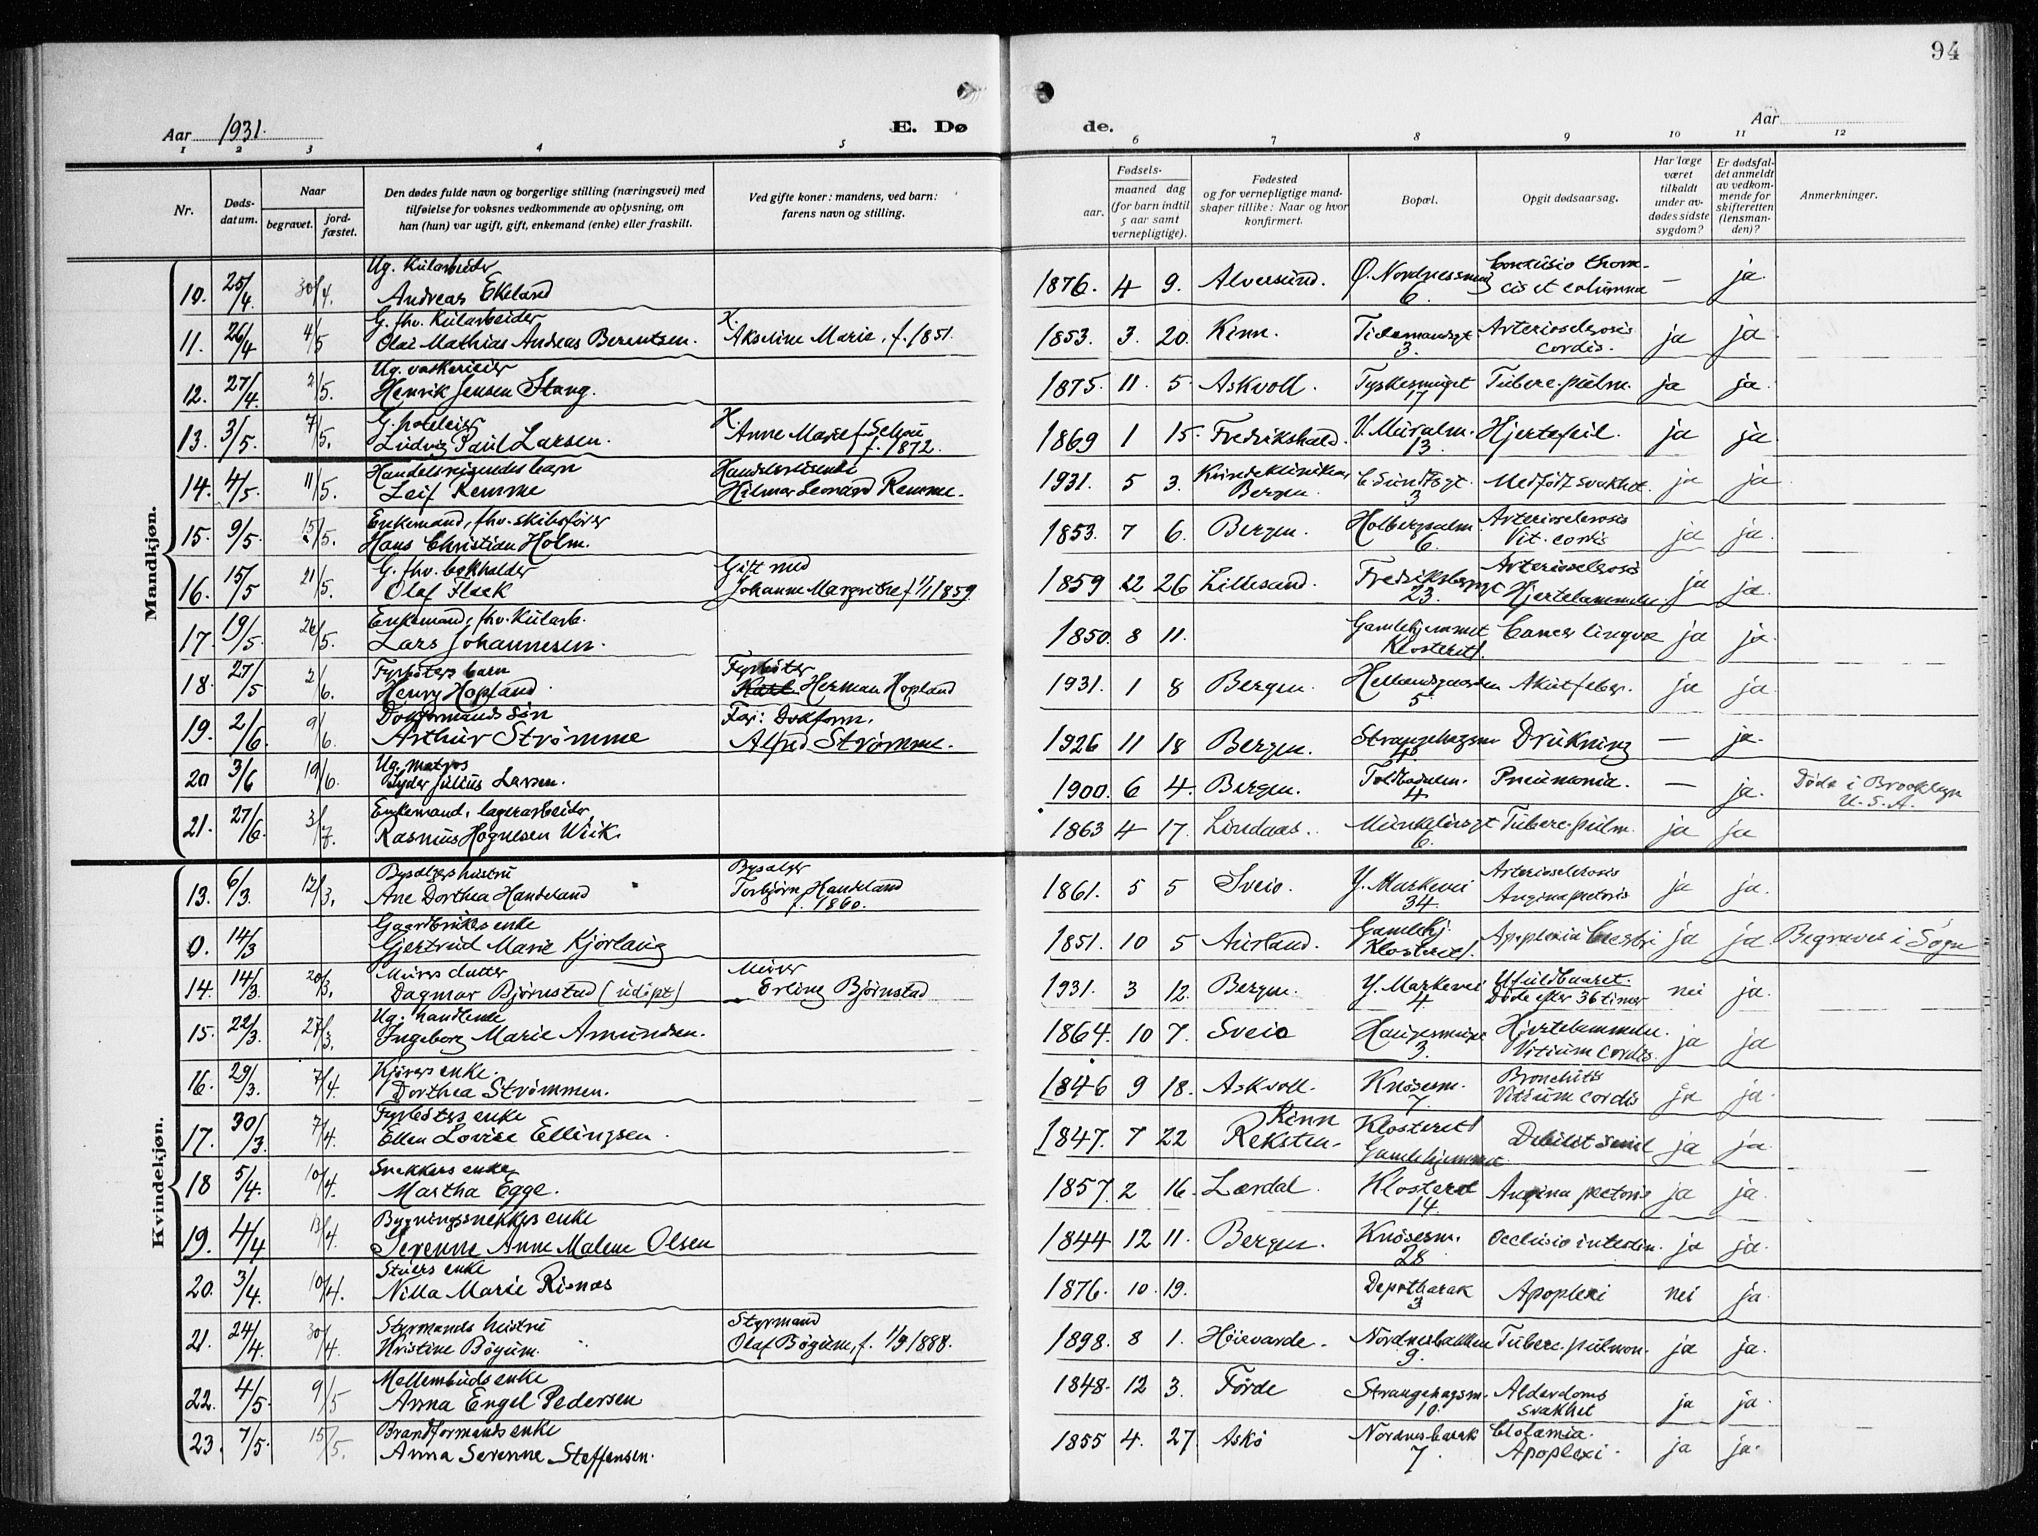 94
Aar 1931. E. Dø de. Aar
1 2 3 4 5 6 7 8 9 10 11 12
Nr.
Døds-
datum.
Naar
begravet.
jord-
fæstet.
Den dødes fulde navn og borgerlige stilling (næringsvei) med
tilføielse for voksnes vedkommende av oplysning, om
han (hun) var ugift, gift, enkemand (enke) eller fraskilt.
Ved gifte koner: mandens, ved barn:
farens navn og stilling.
Fødsels-
aar.
maaned dag
(for barn indtil
5 aar samt
vernepligtige).
Fødested
og for vernepligtige mand-
skaper tillike: Naar og hvor
konfirmert.
Bopæl.
Opgit dødsaarsag.
Har læge
været
tilkaldt
under av-
dødes sidste
sygdom?
Er dødsfal-
det anmeldt
av vedkom-
mende for
skifteretten
(lensman-
den)?
Anmerkninger.
Mandkjøn.
Ug. Kularbeider
10. 25/4. 30/4. Andreas Ekeland 1876. 4 9. Alversund. Ø. Nordnessmug 6. Contusio thora-
cis et columna — ja.
G. fhv. Kularbeider
11. 26/4 4/5 Olai Mathias Andreas Berentsen. Akseline Marie, f. 1851. 1853. 3. 20. Kinn. Tidemandsgt 3. Arteriosclerosis
cordis. ja ja
Ug. vaskerieier
12. 27/4. 2/5. Henrik Jensen Stang. 1875. 11. 5. Askvoll. Tyskesmuget 17 Tuberc. pulm. ja ja.
G. hoteleier
13. 3/5. 7/5. Ludvig Paul Larsen. Anne Marie f. Schou
f. 1872. 1869 1 15. Fredrikshald. V. Muralm. 13. Hjertefeil. ja ja.
Handelsreisendes barn Handelsreisende
14. 4/5. 11/5. Leif Remme Hilmar Leonard Remme. 1931. 5 3. Kvindeklinikken
Bergen. C Sundtsgt. 3 Medfødt svakhet. ja ja
Enkemand, fhv. skibsfører
15. 9/5 15/5. Hans Christian Holm. 1853. 7 6. Bergen. Holbergsalm. 6. Arteriosclerosis
Vit. cordis ja ja.
G. fhv. bokholder Gift med
16. 15/5 21/5. Olaf Flack Johanne Margrethe f. 1/1 1859. 1859 12 26 Lillesand. 23. Arteriosclerosis
Hjertelammelse. ja ja.
Enkemand, fhv. Kularb.
17. 19/5 26/5. Lars Johannesen. 1850. 8 11. Gamlehjemmet
Klosteret. Cancer linguæ ja ja.
Fyrbøters barn Fyrbøter
18. 27/5 2/6. Henry Hopland. Karl Herman Hopland 1931. 1 8 Bergen. 5. Akut feber. ja ja.
Dokformands søn Far: Dokform.
19. 2/6. 9/6. Arthur Strømme Alfred Strømme. 1926 11 18 Bergen. Strangehagen Drukning — ja.
Ug. matros
20 3/6 19/6. Julius Larsen. 1900. 6 4. Bergen. Toldbodalm. 4 Pneumonia. — ja. Døde i Brooklyn
U.S.A.
Enkemand, lagerarbeider,
21. 27/6. 3/7. Rasmus Hognesen Wiik. 1863 4 17. Lindaas. Munkebotsgt 6. Tuberc. pulm. ja ja
Kvindekjøn.
Bysælgers hustru Bysælger
13. 6/3. 12/3. Ane Dorthea Handeland Torbjørn Handeland
f. 1860. 1861. 5 5 Sveio. Y. Markevei 34. Arteriosclerosis
Angina pectoris ja ja.
Gaardbrukers enke
0. 14/3 Gjertrud Marie Kjørlaug 1851. 10 5 Aurland. Gamlehj.
Klosteret. Apoplexia Cerebri ja ja Begraves i Sogn
Murers datter Murer
14. 14/3. 20/3. Dagmar Bjørnstad (udøpt) Erling Bjørnstad 1931. 3 12. Bergen. Y. Markevei 4. Ufuldbaaret.
Døde efter 36 timer nei ja.
Ug. handlende
15. 22/3. 27/3. Ingeborg Marie Amundsen. 1864. 10 7. Sveio Haugesmuget 3. Hjertelammelse.
Vitium cordis. ja ja
16. 29/3. 7/4. Dorthea Strømmen. 1846 9 18. Askvoll. Knøsesm. 7. Bronchitis
Vitium cordis ja ja.
Fyrbøters enke
17. 30/3. 7/4. Ellen Lovise Ellingsen. 1847. 7 22 Kinn
Reksten. Klosteret
Gamlehjemmet Debilit senil ja ja.
Snekkers enke
18 5/4. 10/4. Martha Egge. 1857. 2 16. Lærdal. Klosteret 14. Angina pectoris ja ja.
Bygningssnekkers enke
19. 4/4 13/4. Serenne Anne Malene Olsen 1844 12 11. Bergen. Knøsesm. 28 Occlusio intestin. ja ja.
Stuers enke
20. 3/4. 10/4. Nilla Marie Risnæs 1876. 10. 19. Depotbarak 3 Apoplexi nei ja.
Styrmands hustru Styrmand
21. 24/4. 30/4. Kristine Bøgum. Olaf Bøgum, f. 1/9 1888. 1898. 8 1. Høievarde. Nordnesbakken 9. Tuberc. pulmon. ja ja.
Mellembuds enke
22. 4/5. 9/5 Anna Engel Pedersen 1848. 12 3. Førde Strangehagsm. 10. Alderdoms
svakhet ja ja.
Brandformands enke
23. 7/5. 15/5. Anna Serenne Steffensen. 1855 4. 27. Askø Nordnesbarak 7. Apoplexi. ja ja.